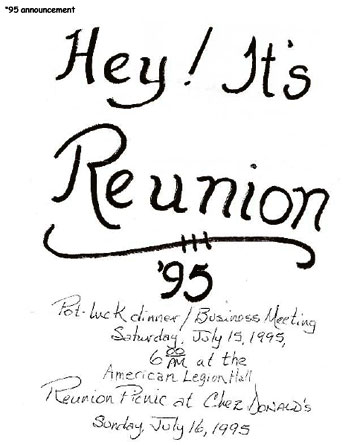 "95 announcement
Hey! It's
Reunion
'95
Pot-luck dinner/Business Meeting
Saturday, July 15, 1995,
6:00 PM at the
American Legion Hall
Reunion Picnic at Chez DONALD'S
Sunday, July 16, 1995